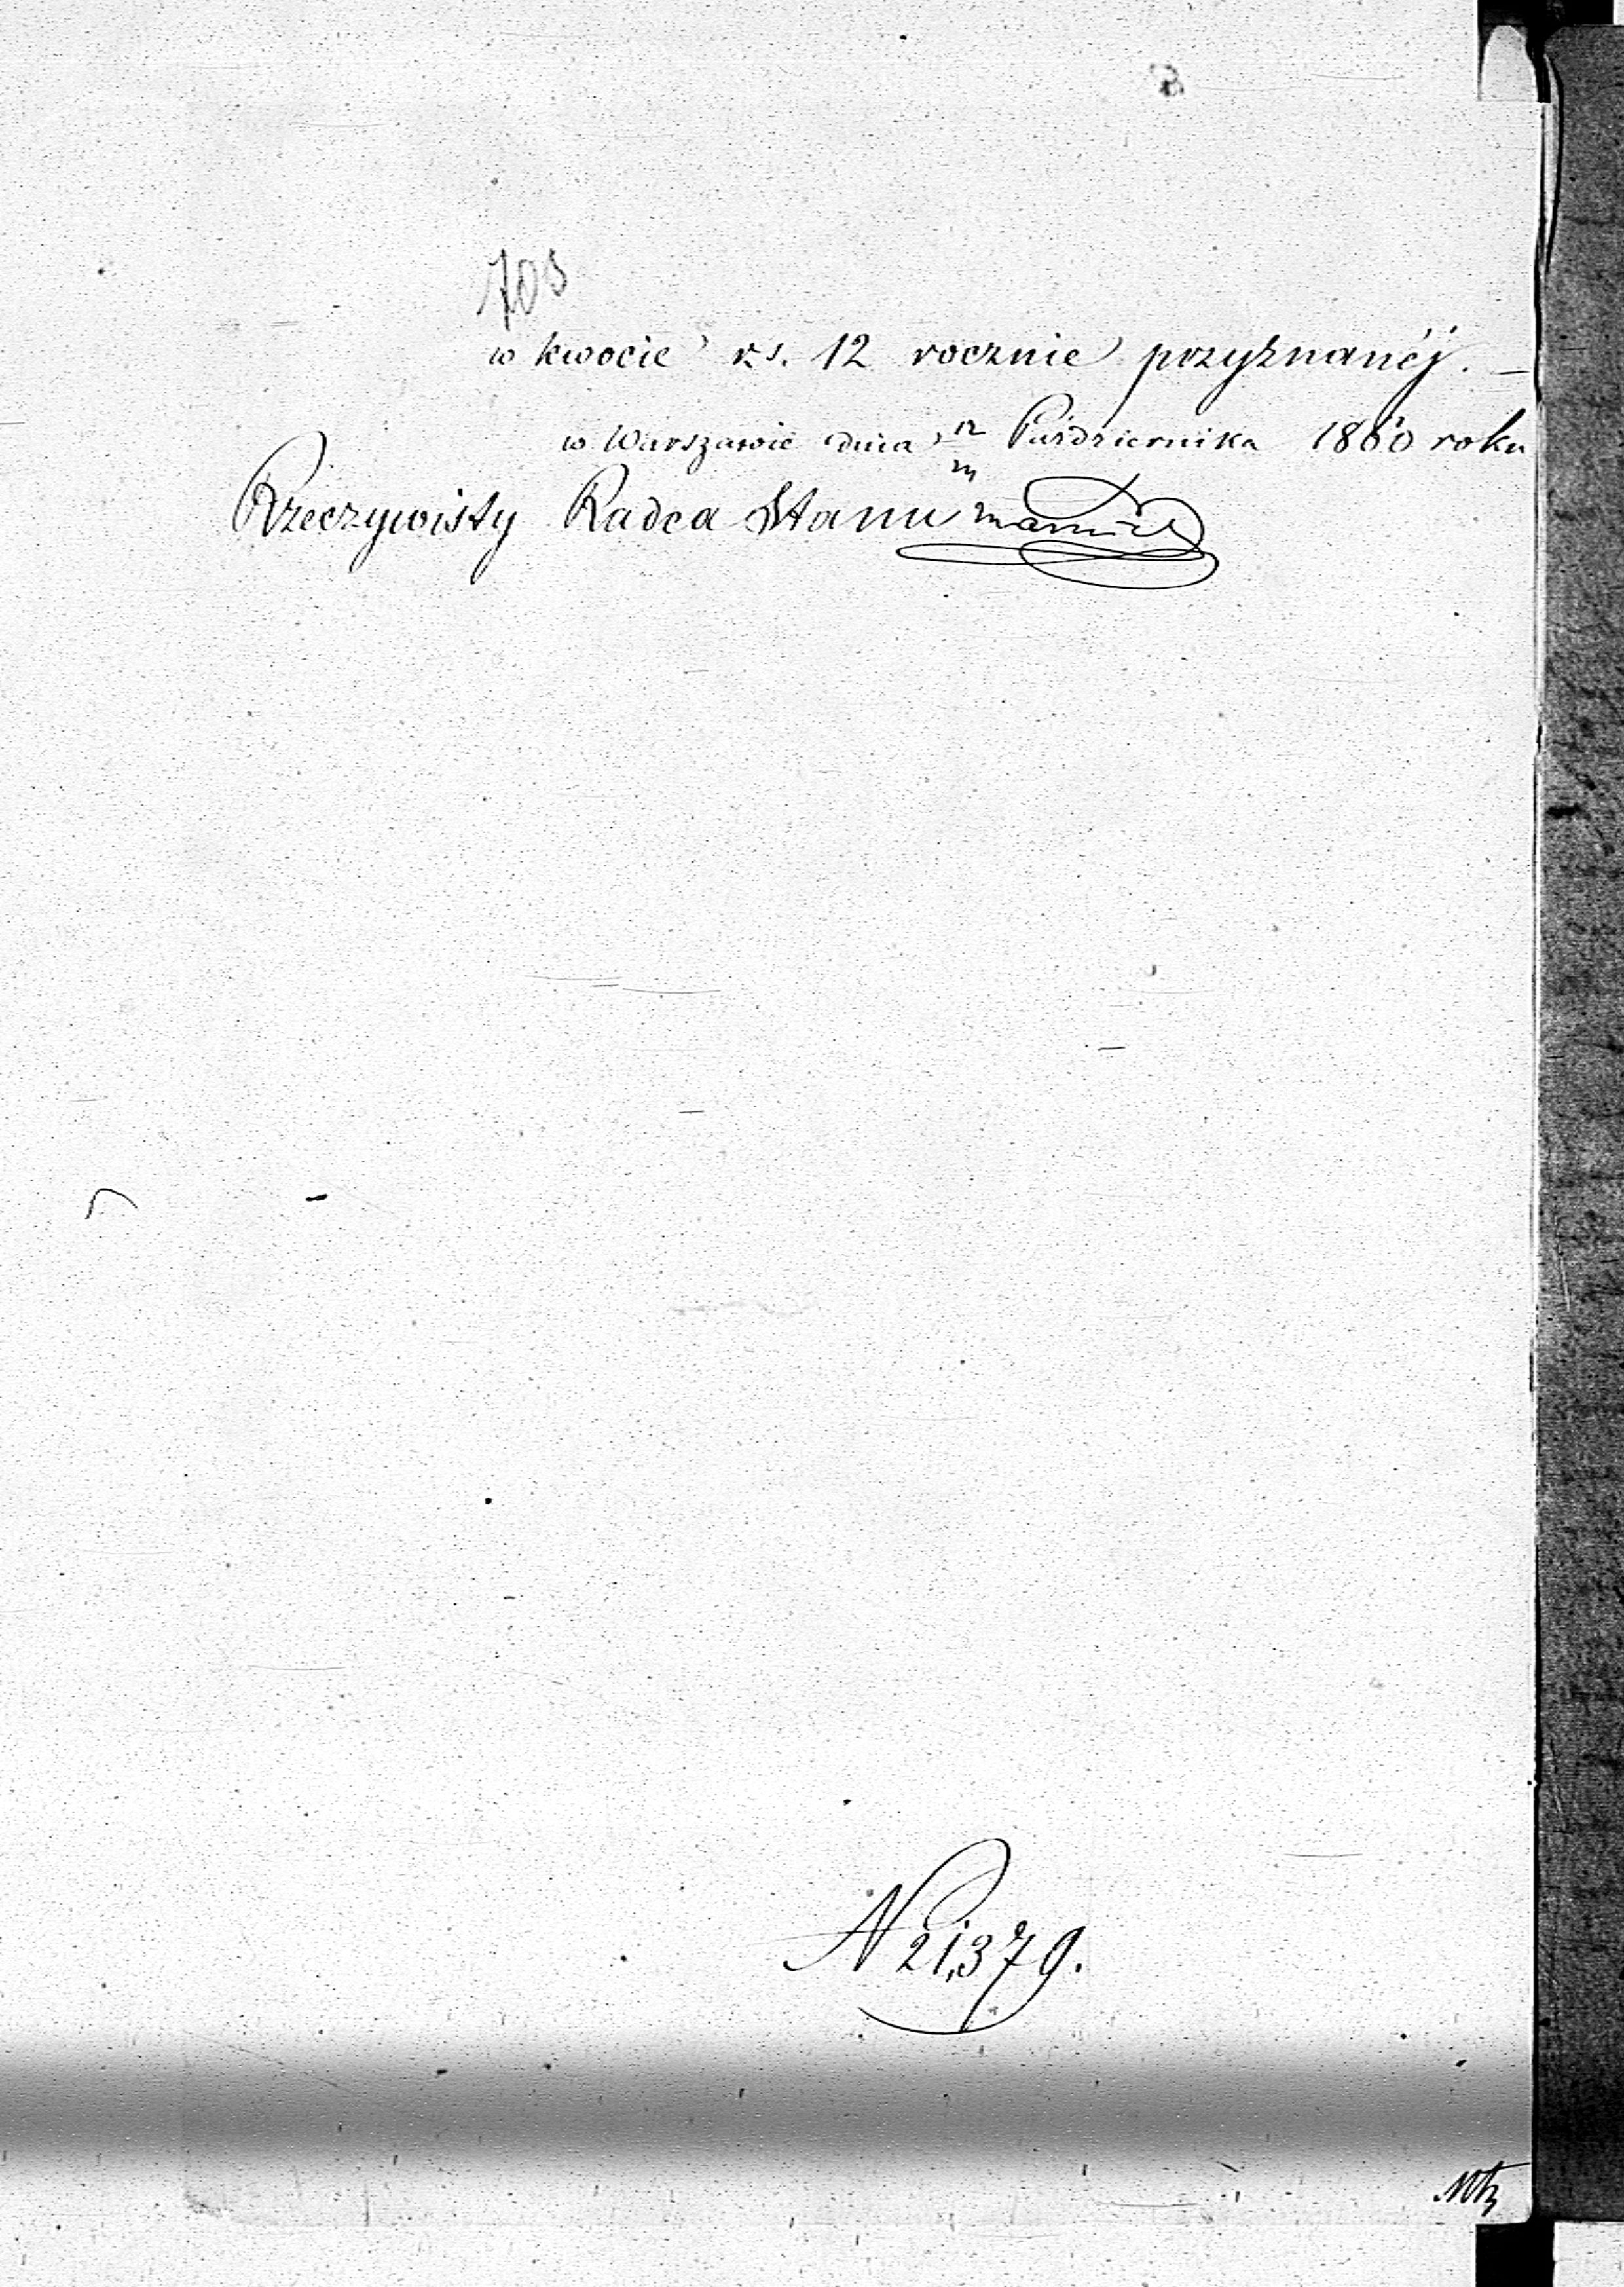 703
w kwocie rs. 12 rocznie przyznanéj. —
w Warszawie dnia 12 Października 1860 roku
Rzeczywisty Radca Stanu
N 21,379.